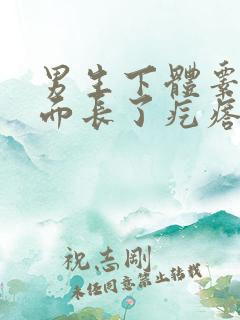 男生下體囊
而長了疙瘩
祝志剛
未经同意禁止转载